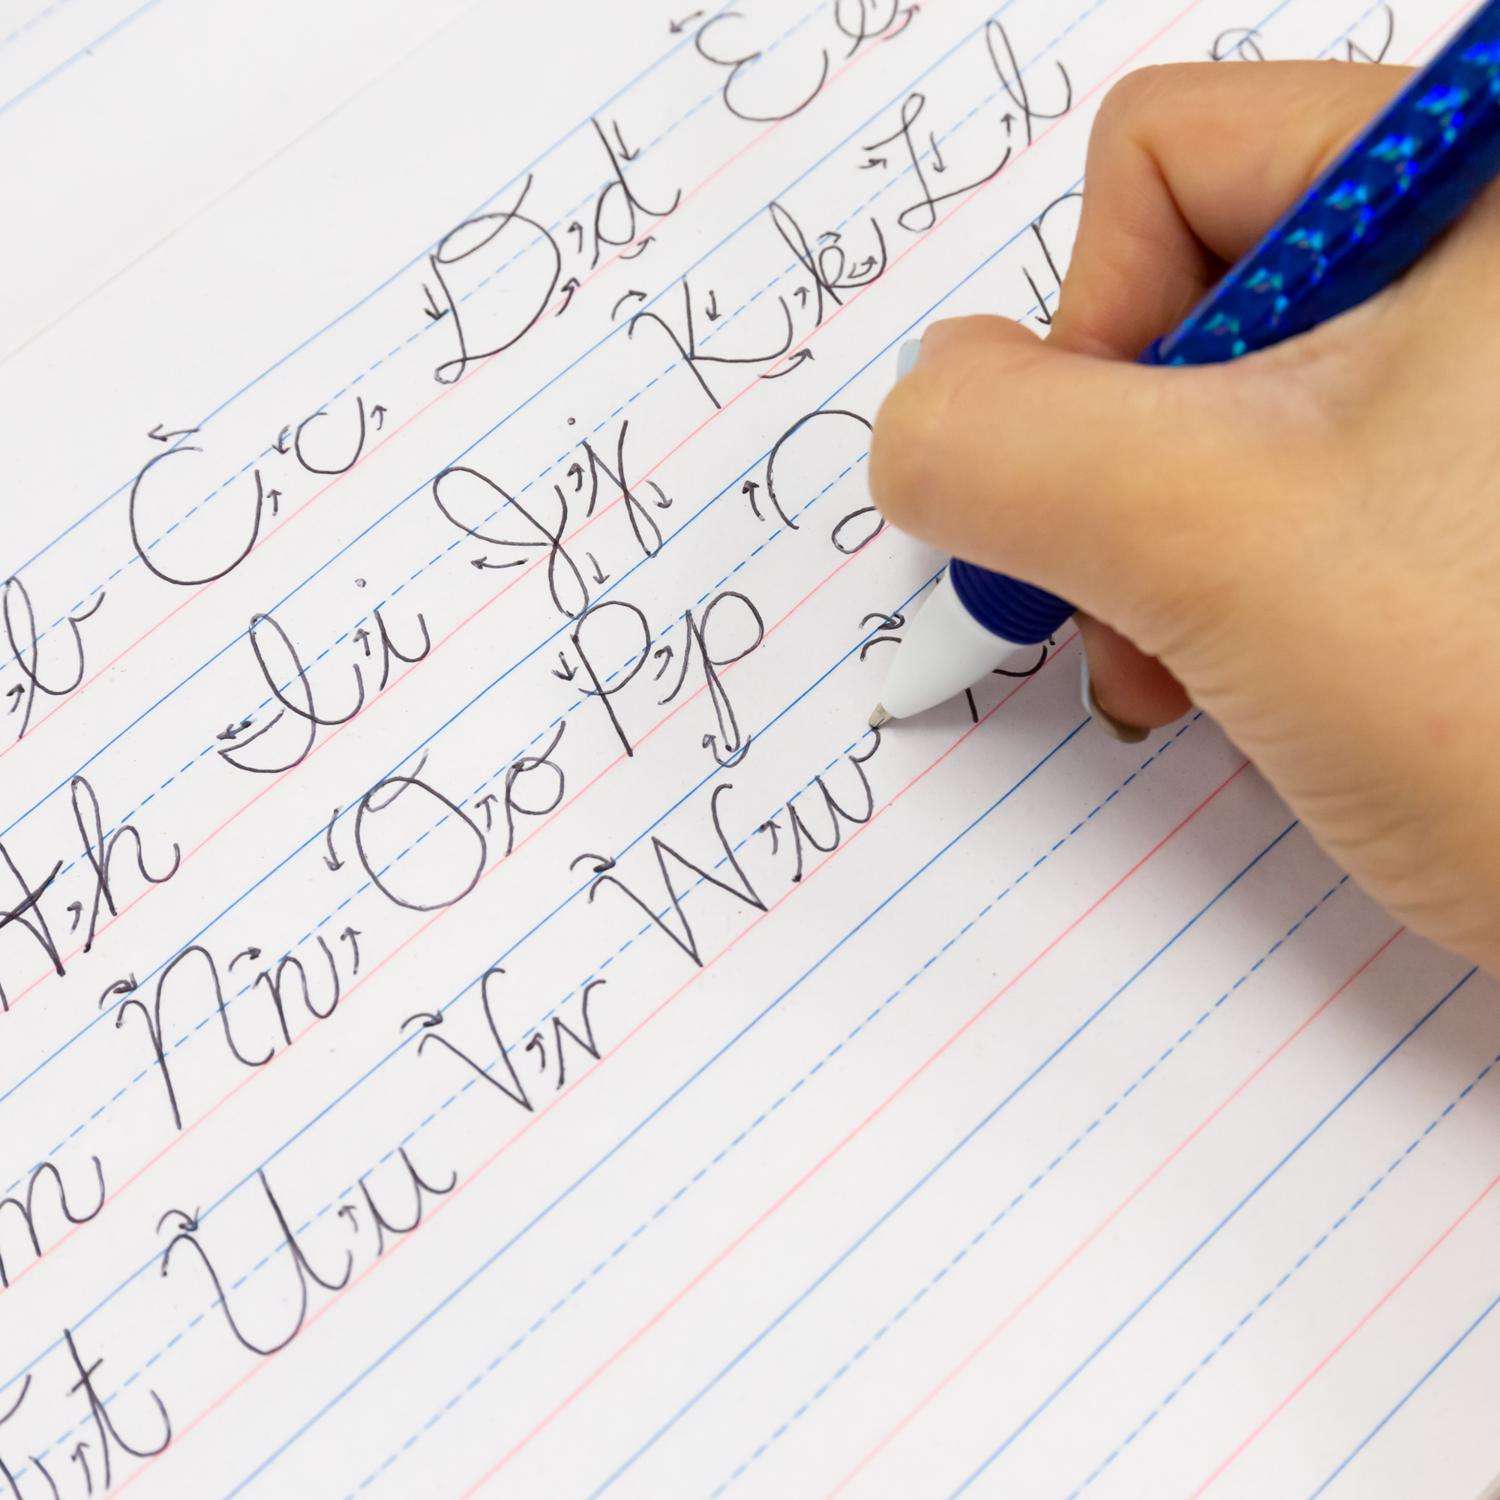 b Cc Dd Ee
Hh Ii Jj Kk Ll
m Nn Oo Pp Q
Tt Uu Vv Ww